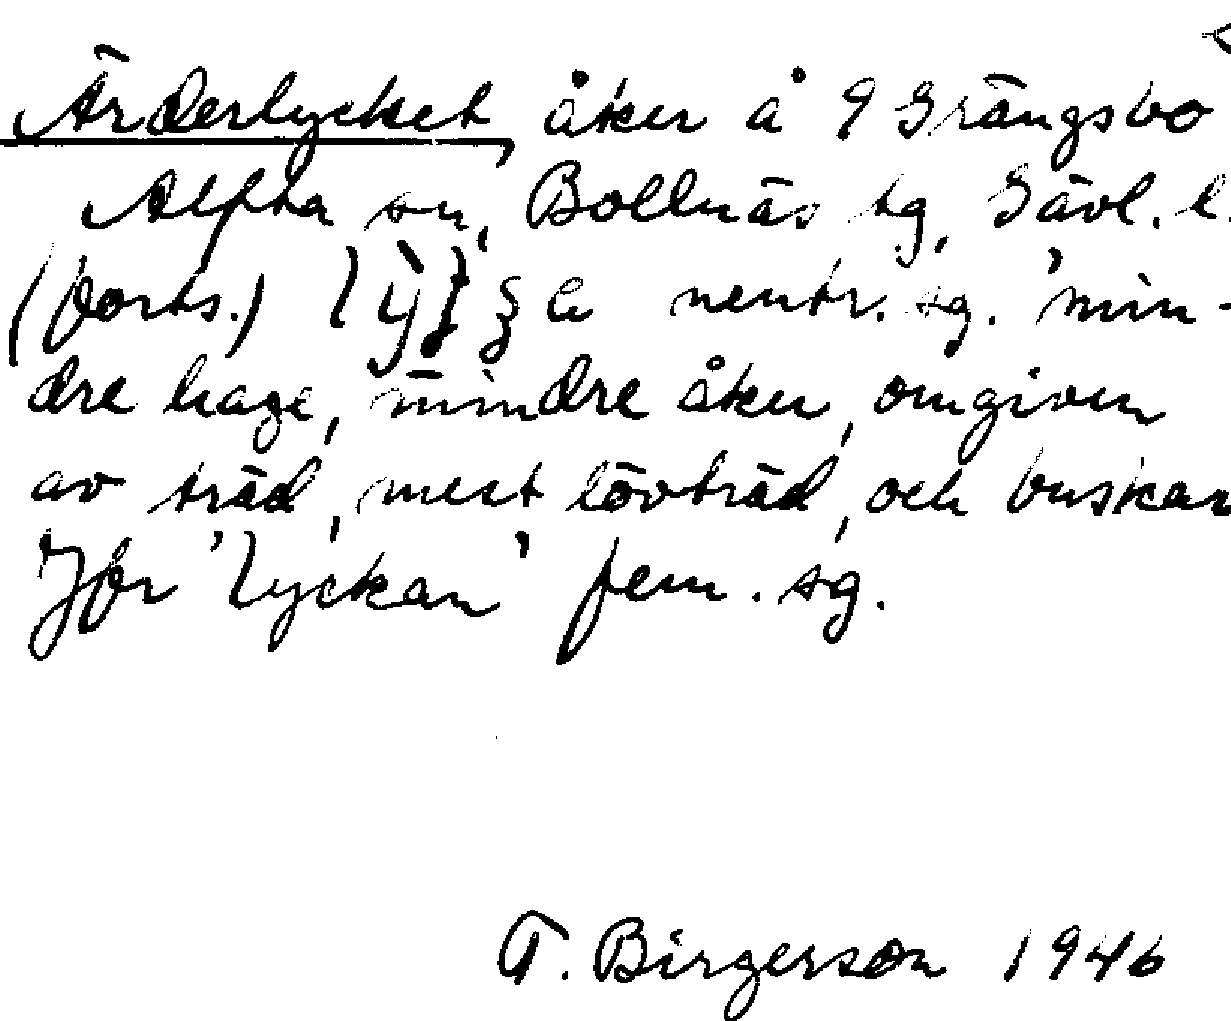 Ärderlycket, åker å 9 Grängsbo
Alfta sn, Bollnäs tg, Gävl. l.
(forts.) neutr. sg. 'min-
dre hage, mindre åker, omgiven
av träd, mest lövträd, och buskar
Jfr 'Lyckan' fem. sg.
T. Birgerson 1946